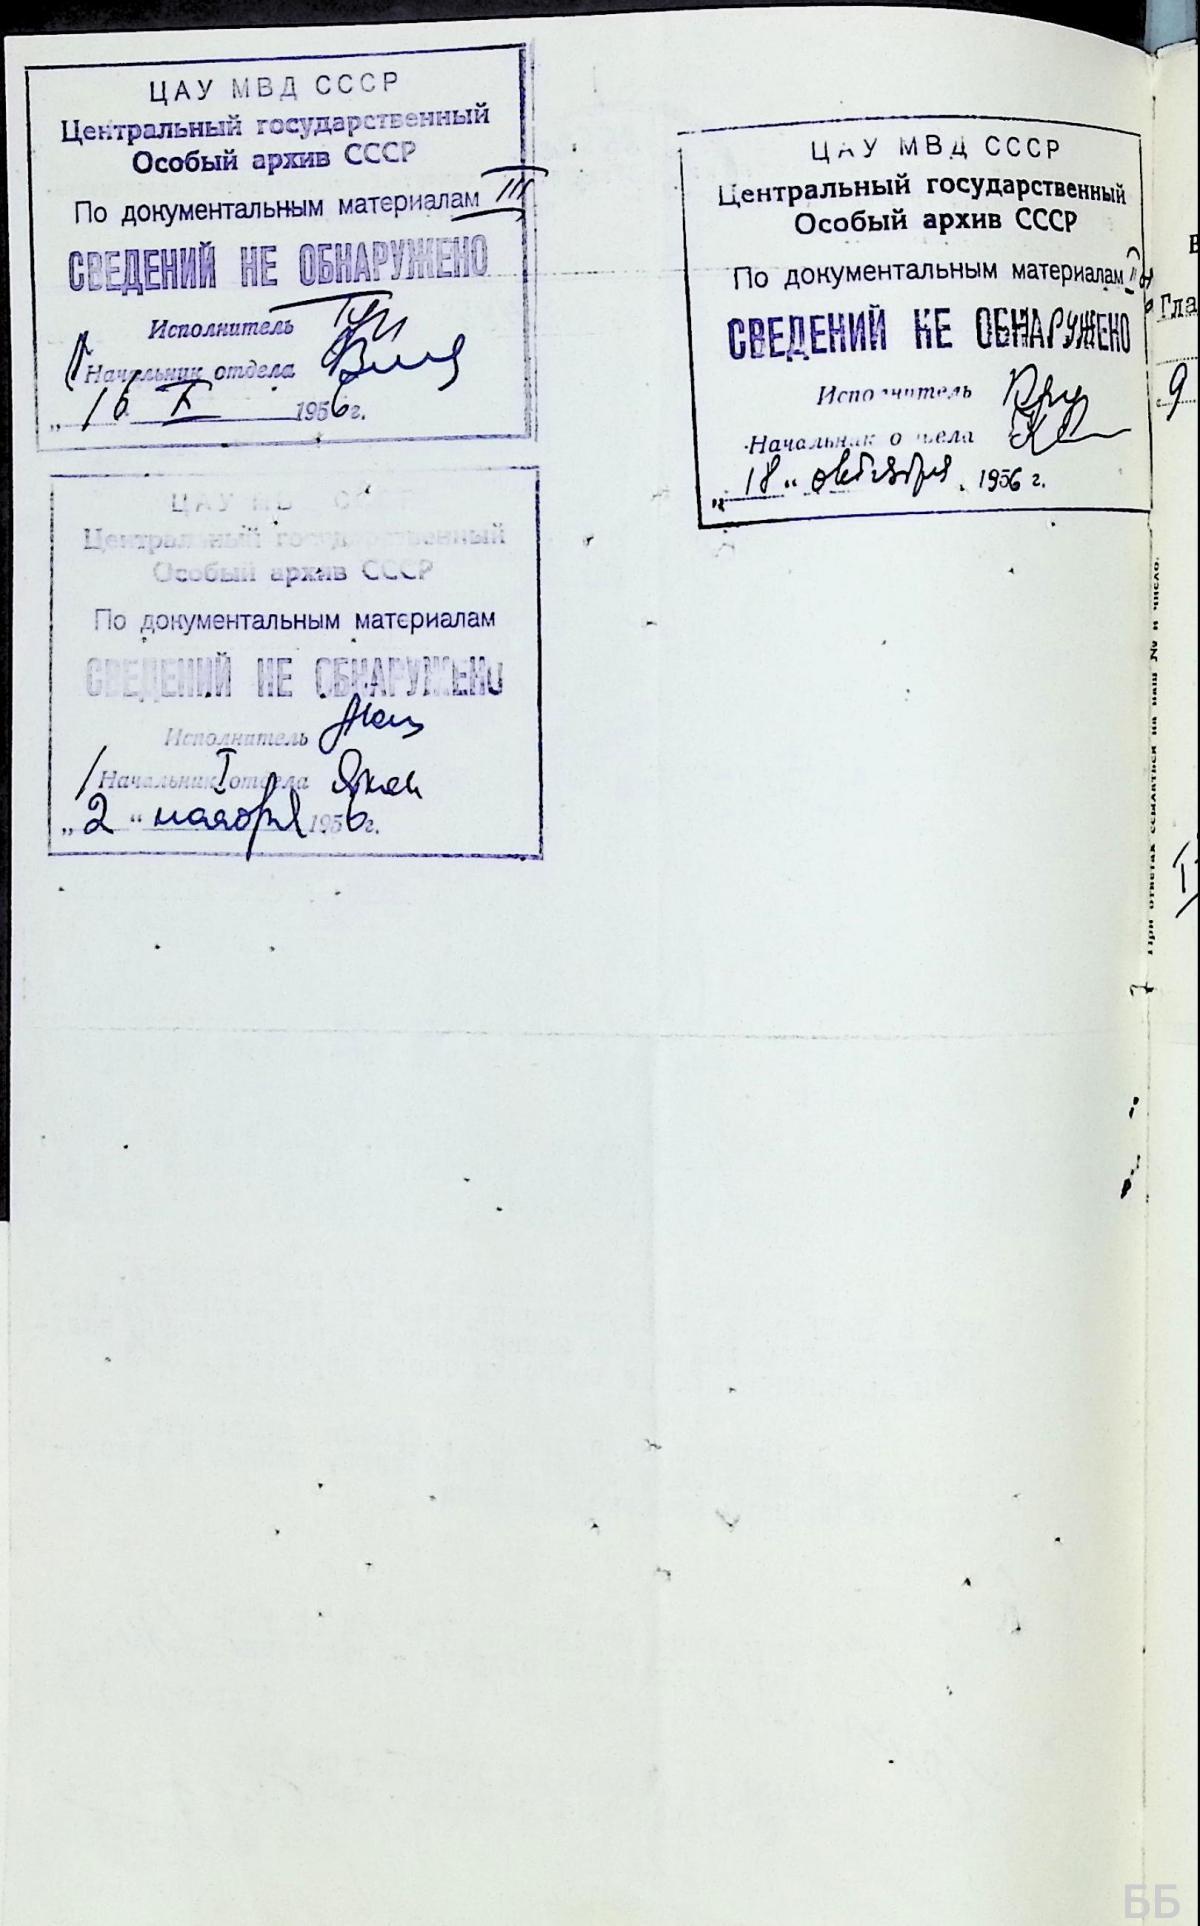 ЦАУ МВД СССР
Центральный государственный
Особый архив СССР
По документальным материалам III
СВЕДЕНИЙ НЕ ОБНАРУЖЕНО
Исполнитель
Начальник отдела
„16 X 1956 г.
ЦАУ МВД СССР
Центральный государственный
Особый архив СССР
По документальным материалам
СВЕДЕНИЙ НЕ ОБНАРУЖЕНО
Исполнитель
Начальник отдела
„18“ октября 1956 г.
ЦАУ МВД СССР
Центральный государственный
Особый архив СССР
По документальным материалам
СВЕДЕНИЙ НЕ ОБНАРУЖЕНО
Исполнитель
Начальник I отдела
„2“ ноября 1956 г.
При ответах ссылаться на наш № и число.
Гла
9
ББ